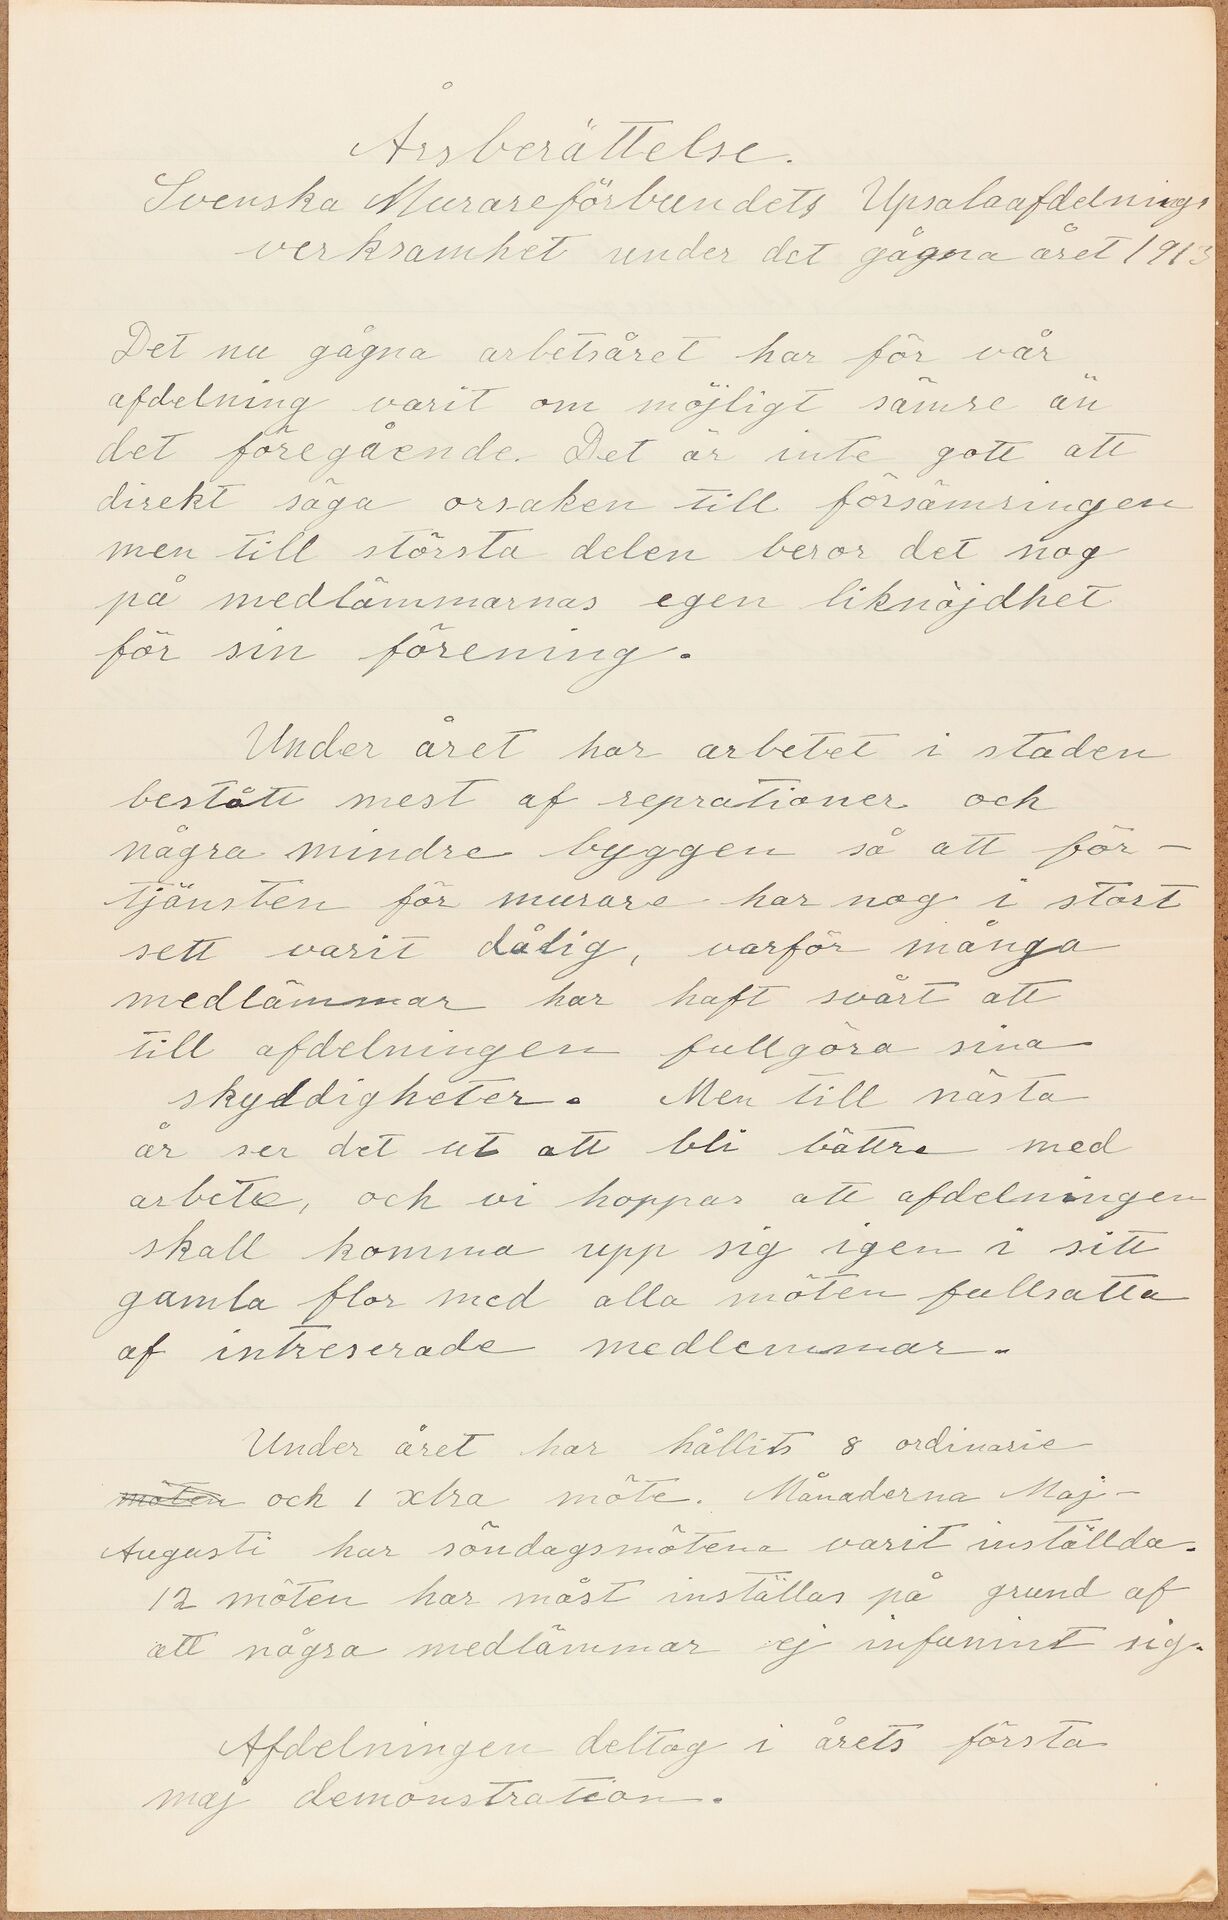 Årsberättelse.
Svenska Murareförbundets Upsalaafdelnings
verksamhet under det gågna året 1913
Det nu gågna arbetsåret har för vår
afdelning varit om möjligt sämre än
det föregående. Det är inte gott att
direkt säga orsaken till försämringen
men till största delen beror det nog
på medlämmarnas egen liknöjdhet
för sin förening.
Under året har arbetet i staden
bestått mest af reprationer och
några mindre byggen så att för-
tjänsten för murare har nog i stort
sett varit dålig, varför många
medlämmar har haft svårt att
till afdelningen fullgöra sina
skyddigheter. Men till nästa
år ser det ut att bli bättre med
arbete, och vi hoppas att afdelningen
skall komma upp sig igen i sitt
gamla flor med alla möten fullsatta
af intreserade medlemmar.
Under året har hållits 8 ordinarie
möten och 1 xtra möte. Månaderna Maj-
Augusti har söndagsmötena varit inställda.
12 möten har måst inställas på grund af
att några medlämmar ej infunnit sig.
Afdelningen deltog i årets första
maj demonstration.